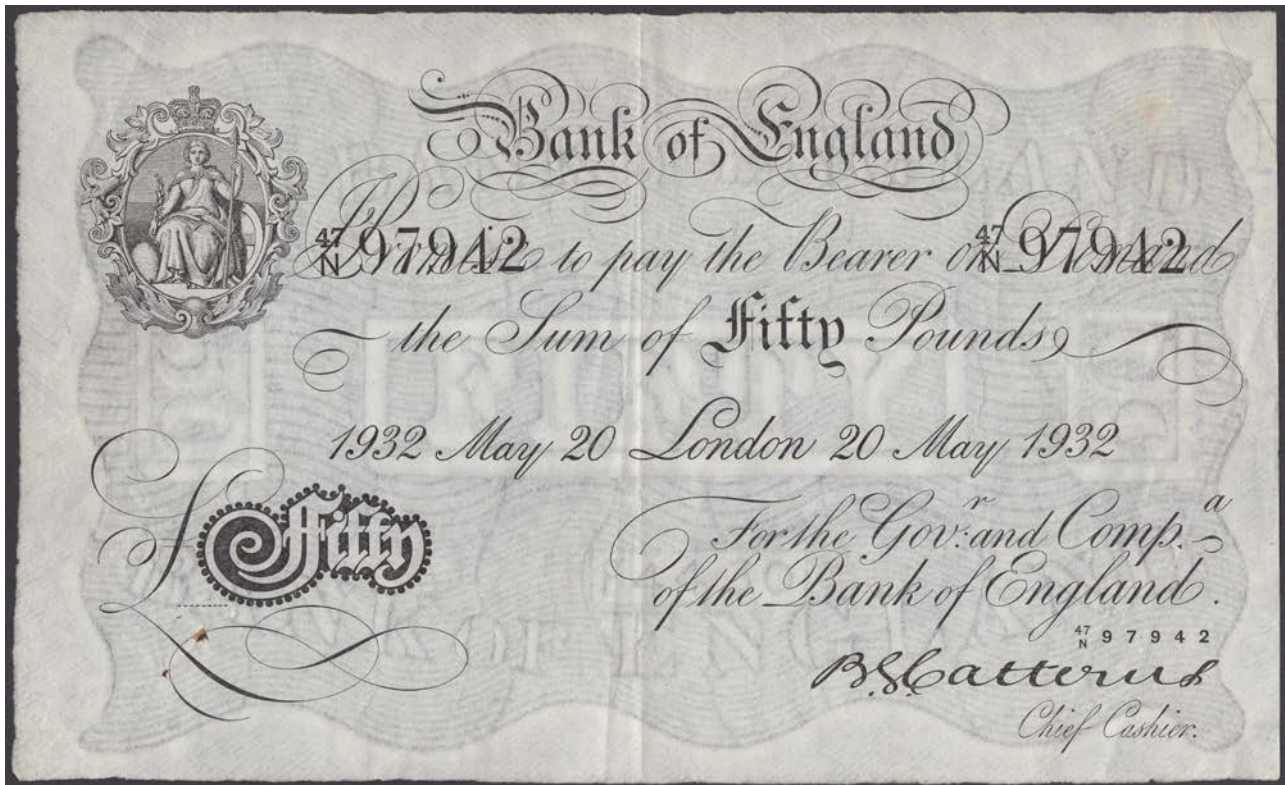 Bank of England
I Promise to pay the Bearer on Demand
47/N 97942 47/N 97942
the Sum of Fifty Pounds
1932 May 20 London 20 May 1932
£ Fifty
For the Gov.r and Comp.a
of the Bank of England.
47/N 97942
B.G. Catterns
Chief Cashier.